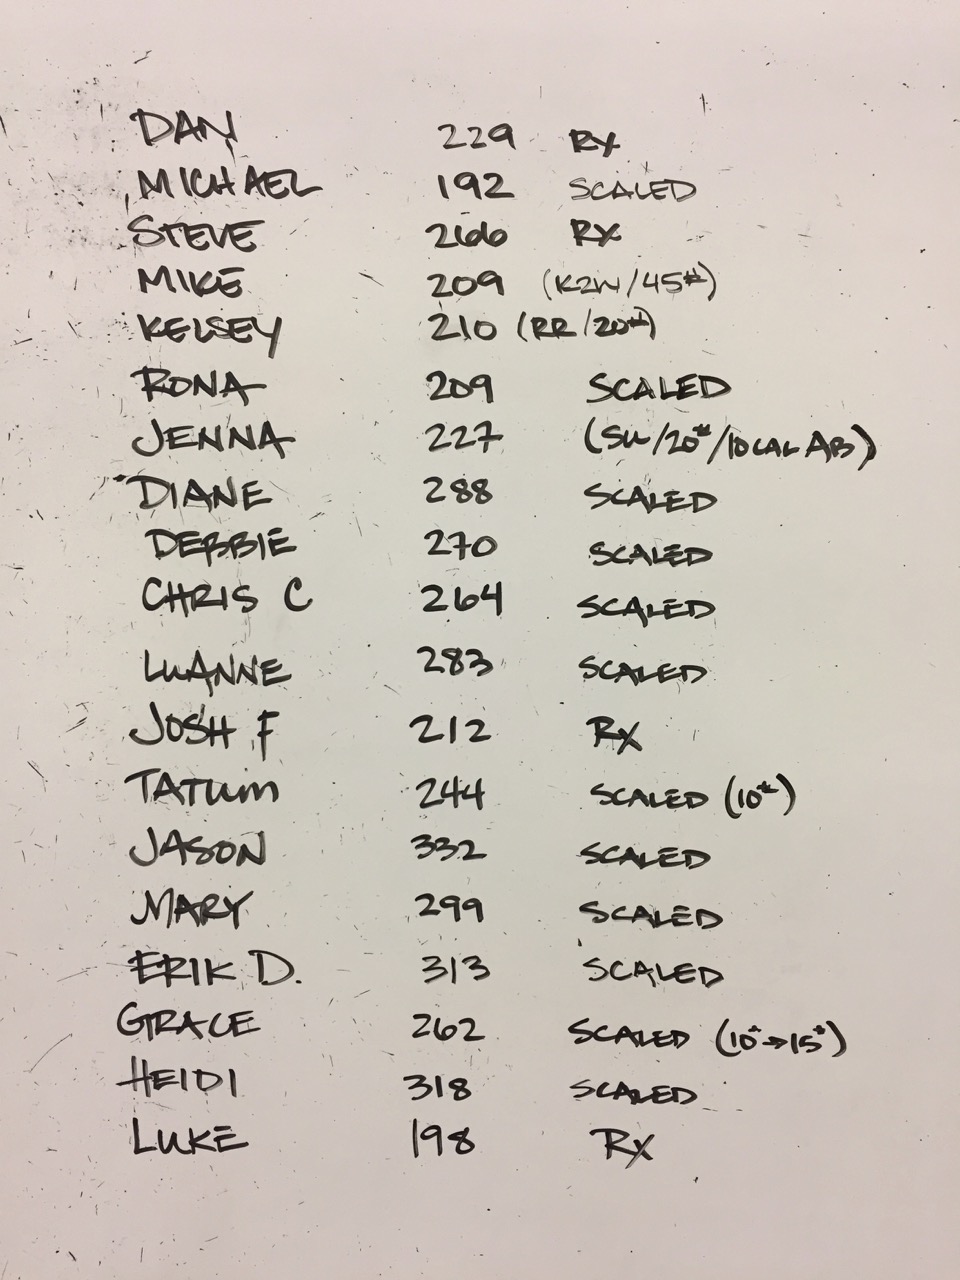 DAN 229 RX
MICHAEL 192 SCALED
STEVE 266 RX
MIKE 209 (K2W/45#)
KELSEY 210 (RR/20#)
RONA 209 SCALED
JENNA 227 (SU/20#/10CAL AB)
DIANE 288 SCALED
DEBBIE 270 SCALED
CHRIS C 264 SCALED
LUANNE 283 SCALED
JOSH F 212 RX
TATUM 244 SCALED (10#)
JASON 332 SCALED
MARY 299 SCALED
ERIK D. 313 SCALED
GRACE 262 SCALED (10#→15#)
HEIDI 318 SCALED
LUKE 198 RX